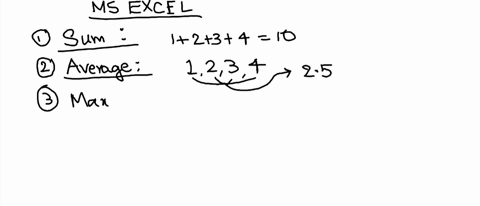 MS EXCEL
① Sum : 1+2+3+4 = 10
② Average: 1,2,3,4 → 2.5
③ Max